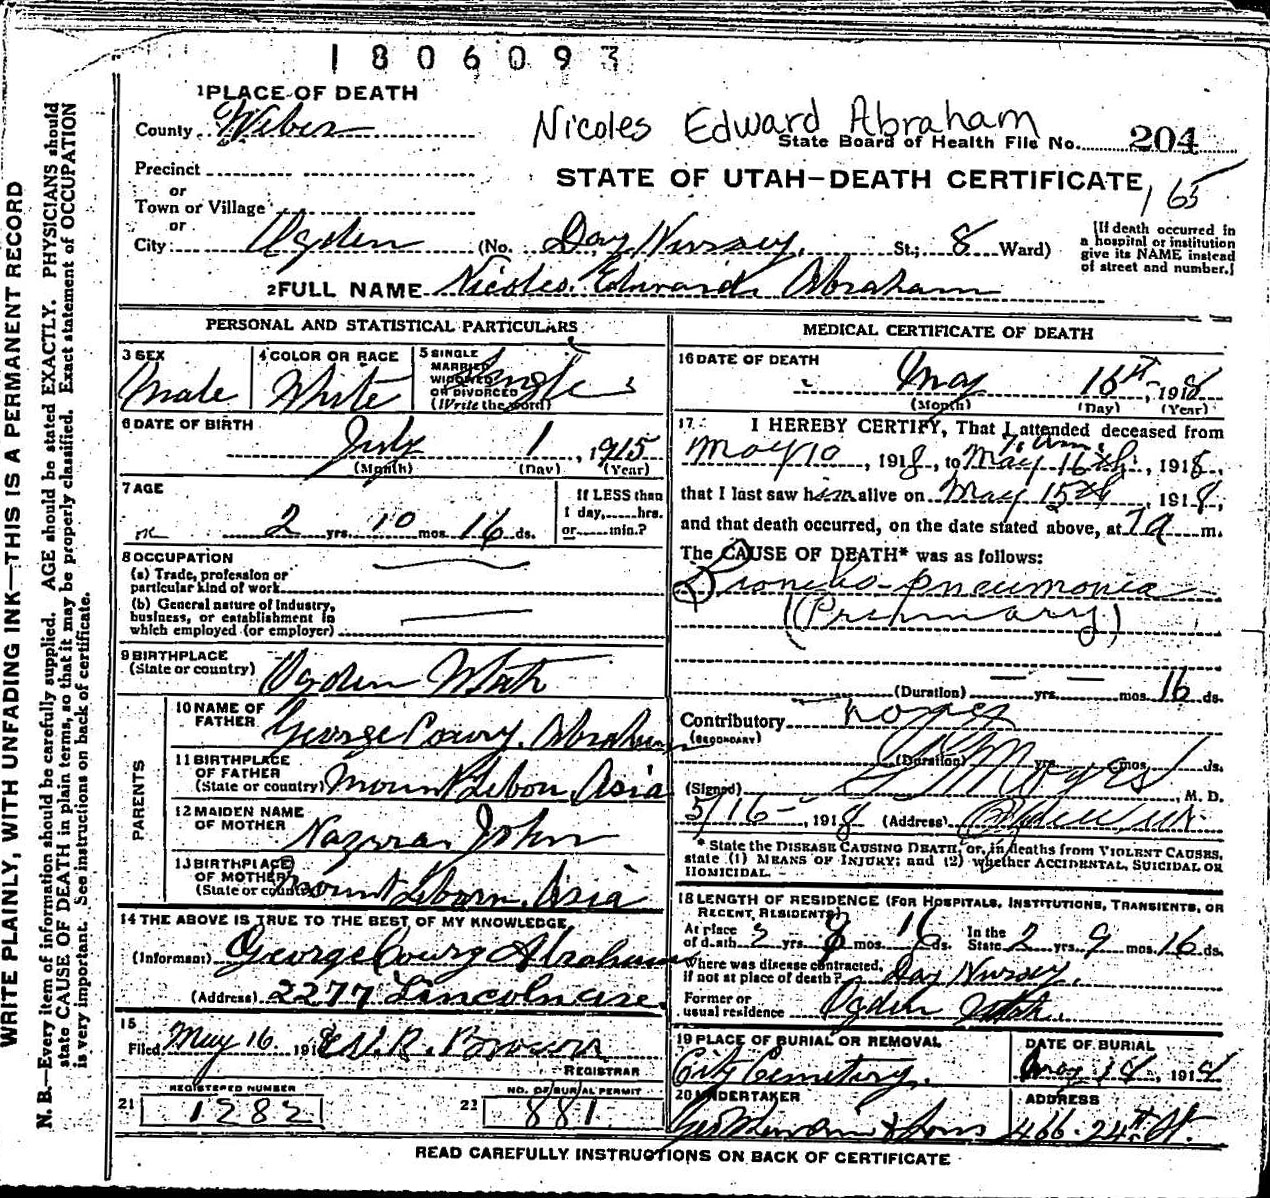 1806093
1 PLACE OF DEATH
County Weber
Nicoles Edward Abraham
State Board of Health File No. 204
Precinct
or
Town or Village
or
STATE OF UTAH—DEATH CERTIFICATE
165
City: Ogden (No. Day Nursey. St.; 8 Ward)
[If death occurred in
a hospital or institution
give its NAME instead
of street and number.]
2 FULL NAME Nicoles Edward Abraham
PERSONAL AND STATISTICAL PARTICULARS
3 SEX
Male
4 COLOR OR RACE
White
5 SINGLE
MARRIED
WIDOWED
OR DIVORCED
(Write the word)
Single
6 DATE OF BIRTH
July 1, 1915
(Month) (Day) (Year)
7 AGE
2 yrs. 10 mos. 16 ds.
If LESS than
1 day,......hrs.
or......min.?
8 OCCUPATION
(a) Trade, profession or
particular kind of work
(b) General nature of Industry,
business, or establishment in
which employed (or employer)
9 BIRTHPLACE
(State or country) Ogden Utah
PARENTS
10 NAME OF
FATHER George Coury Abraham
11 BIRTHPLACE
OF FATHER
(State or country) Mount Lebon, Asia
12 MAIDEN NAME
OF MOTHER Nazira John
13 BIRTHPLACE
OF MOTHER
(State or country) Mount Liborn, Asia
14 THE ABOVE IS TRUE TO THE BEST OF MY KNOWLEDGE
(Informant) George Coury Abraham
(Address) 2277 Lincoln ave.
15
Filed May 16 1918 W. R. Brown
REGISTRAR
21 REGISTERED NUMBER
1282
22 NO. OF BURIAL PERMIT
881
MEDICAL CERTIFICATE OF DEATH
16 DATE OF DEATH
May 16th, 1918
(Month) (Day) (Year)
17. I HEREBY CERTIFY, That I attended deceased from
7. am.
May 10, 1918, to May 16th, 1918,
that I last saw him alive on May 15th, 1918,
and that death occurred, on the date stated above, at 7 a m.
The CAUSE OF DEATH* was as follows:
Broncho-pneumonia
(Primary)
(Duration) yrs. mos. 16 ds.
Contributory
(SECONDARY)
(Duration) yrs. mos. ds.
(Signed) M. D.
5/16 - , 1918 (Address) Ogden Ut
* State the DISEASE CAUSING DEATH, or, in deaths from VIOLENT CAUSES,
state (1) MEANS OF INJURY; and (2) whether ACCIDENTAL, SUICIDAL OR
HOMICIDAL.
18 LENGTH OF RESIDENCE (FOR HOSPITALS, INSTITUTIONS, TRANSIENTS, OR
RECENT RESIDENTS)
At place
of death 2 yrs. mos. 16 ds. In the
State 2 yrs. 9 mos. 16 ds.
Where was disease contracted,
if not at place of death? Day Nursey.
Former or
usual residence Ogden Utah.
19 PLACE OF BURIAL OR REMOVAL
City Cemetery.
DATE OF BURIAL
May 18, 1918
20 UNDERTAKER
& Sons
ADDRESS
466-24th St.
READ CAREFULLY INSTRUCTIONS ON BACK OF CERTIFICATE
WRITE PLAINLY, WITH UNFADING INK—THIS IS A PERMANENT RECORD
N. B.—Every item of information should be carefully supplied. AGE should be stated EXACTLY. PHYSICIANS should
state CAUSE OF DEATH in plain terms, so that it may be properly classified. Exact statement of OCCUPATION
is very important. See instructions on back of certificate.